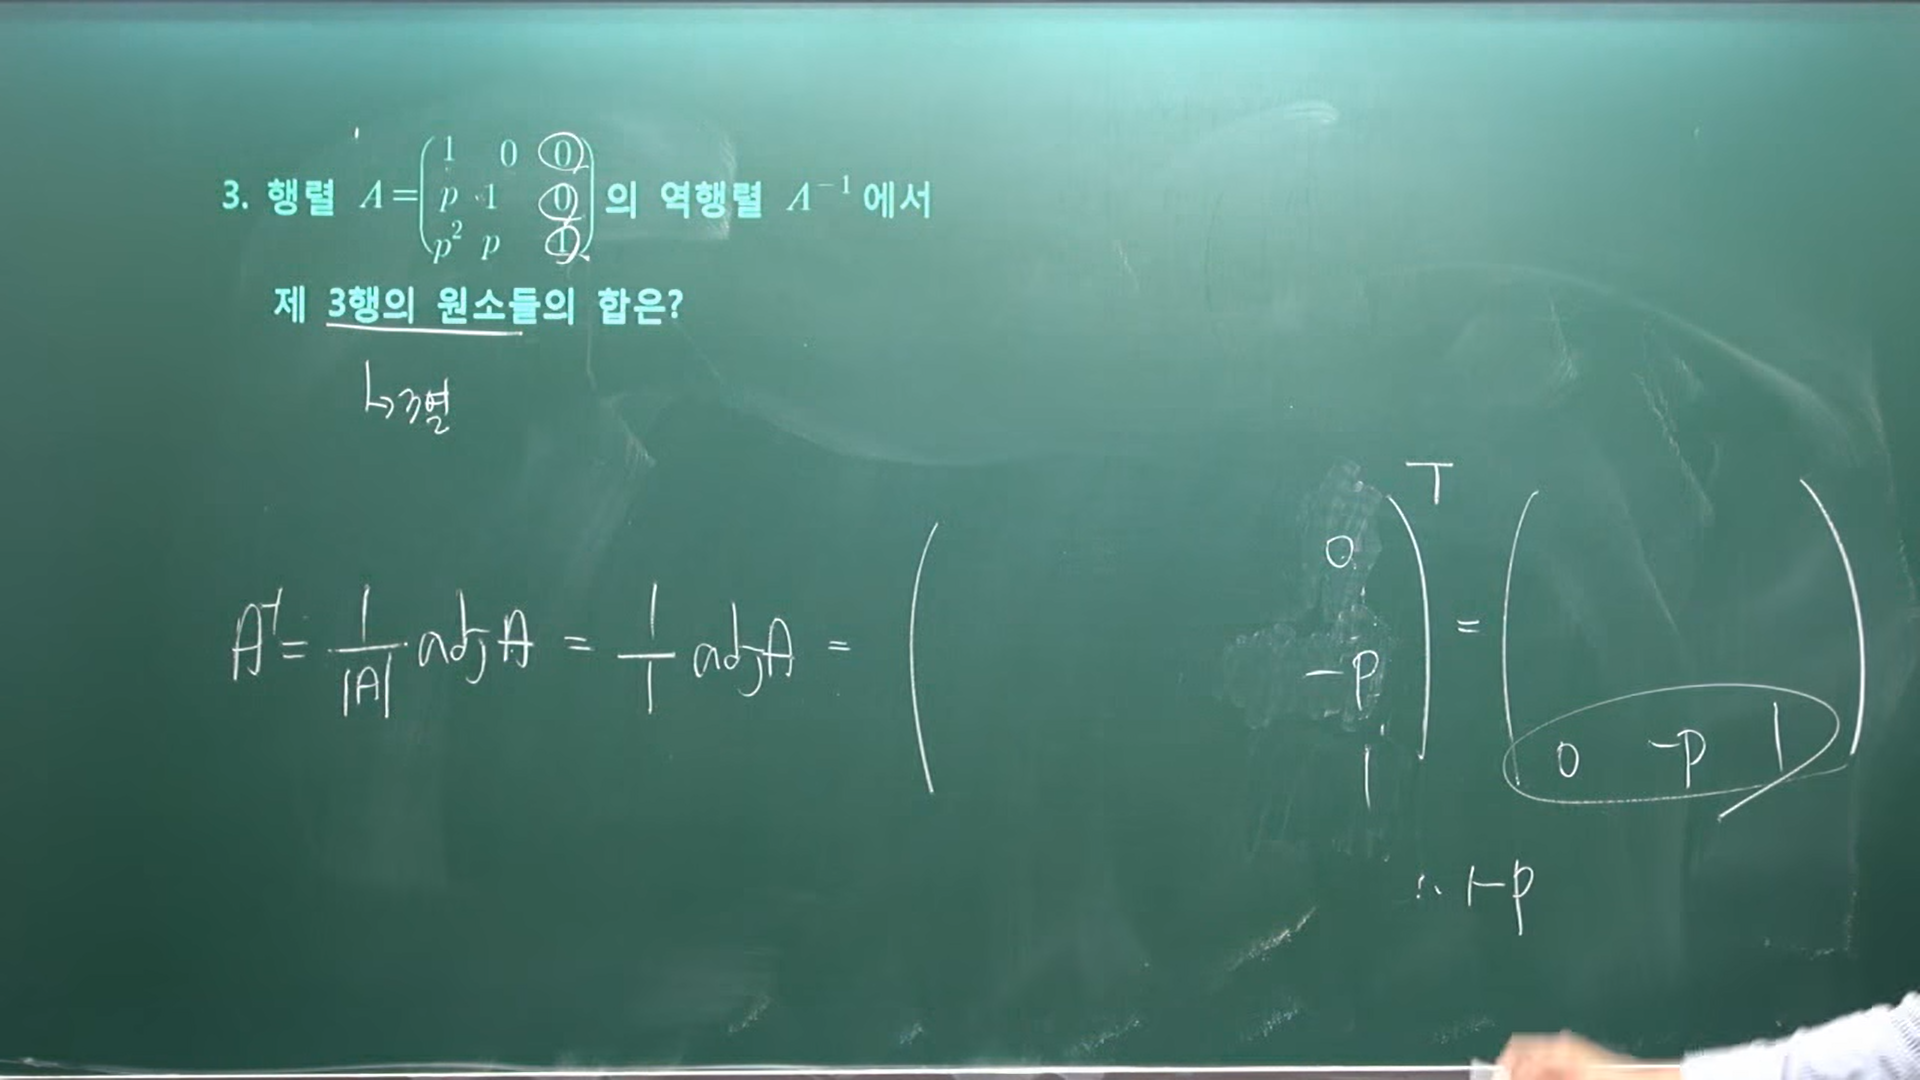 3. 행렬 A=(1 0 0
p 1 0
p² p 1)의 역행렬 A⁻¹에서
제 3행의 원소들의 합은?
↳3열
A⁻¹= 1/|A| · adj A = 1/1 adj A = (
0
-p
1
)ᵀ = (
0 -p 1
)
∴ 1-p